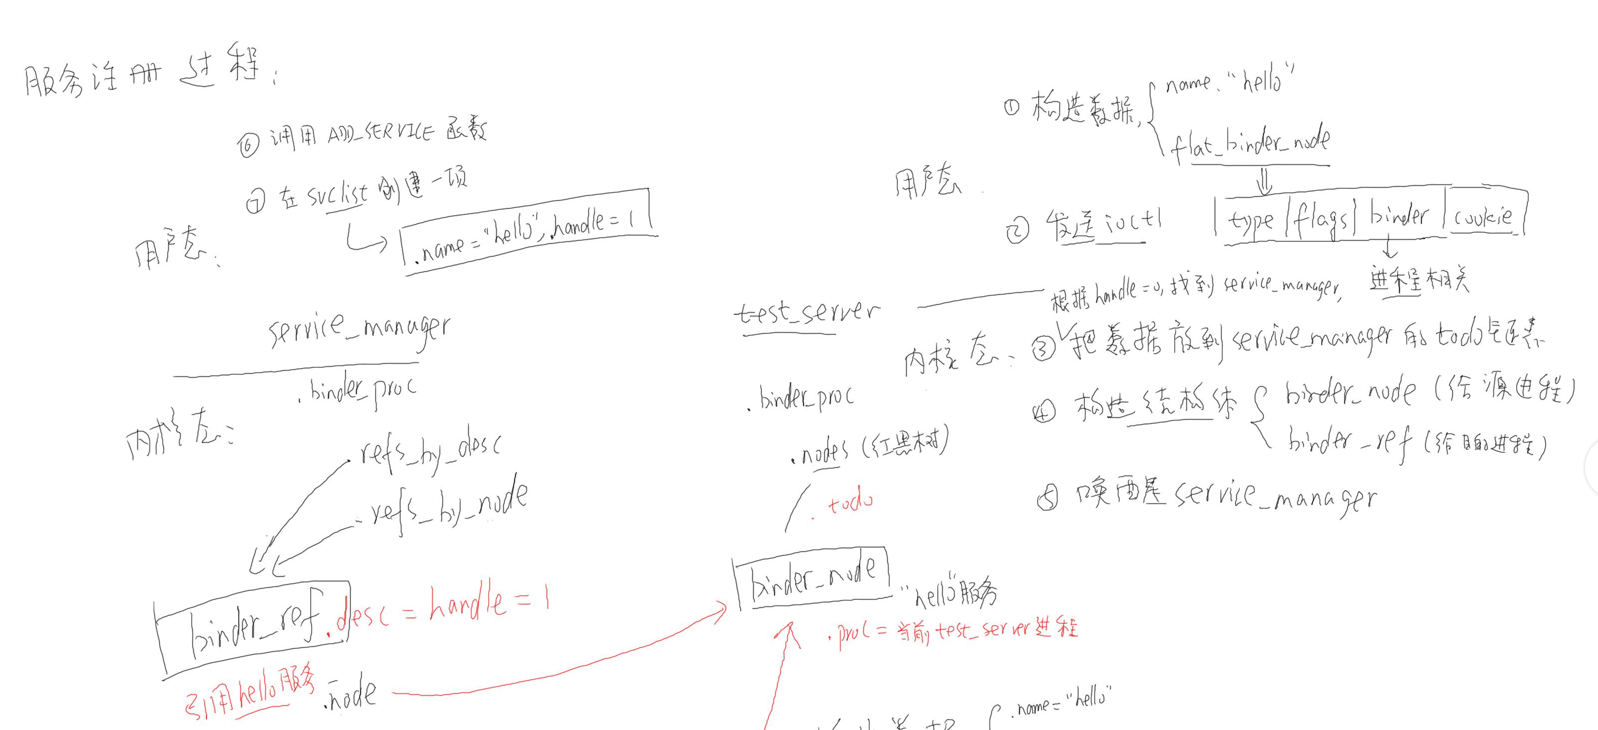 服务注册过程:
⑥ 调用 ADD_SERVICE 函数
⑦ 在 svclist 创建一项
.name="hello", .handle=1
用户态:
service_manager
.binder_proc
内核态:
.refs_by_desc
.refs_by_node
binder_ref .desc = handle = 1
引用hello服务
.node
test_server
.binder_proc
.nodes (红黑树)
.todo
binder_node
"hello"服务
.proc = 当前test_server进程
① 构造数据, name: "hello"
flat_binder_node
用户态
② 发送ioctl
type | flags | binder | cookie
根据handle=0, 找到service_manager, 进程相关
内核态: ③ 把数据放到service_manager的todo链表
④ 构造结构体 binder_node (给源进程)
binder_ref (给目的进程)
⑤ 唤醒 service_manager
.name="hello"